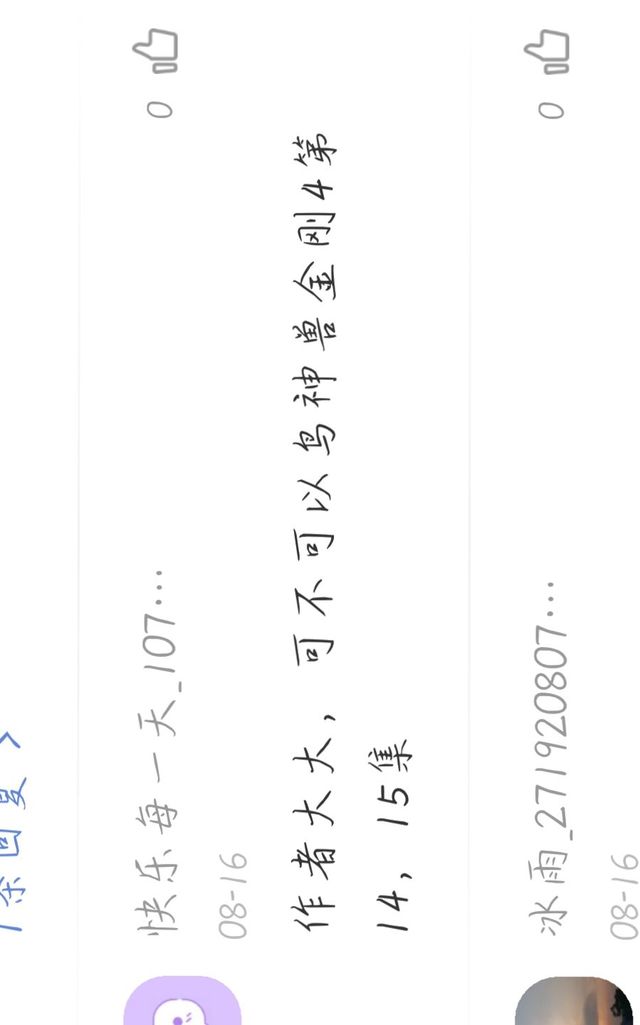 1条回复 >
快乐每一天_107…
0
08-16
作者大大，可不可以鸟神兽金刚4第
14，15集
冰雨_271920807…
0
08-16